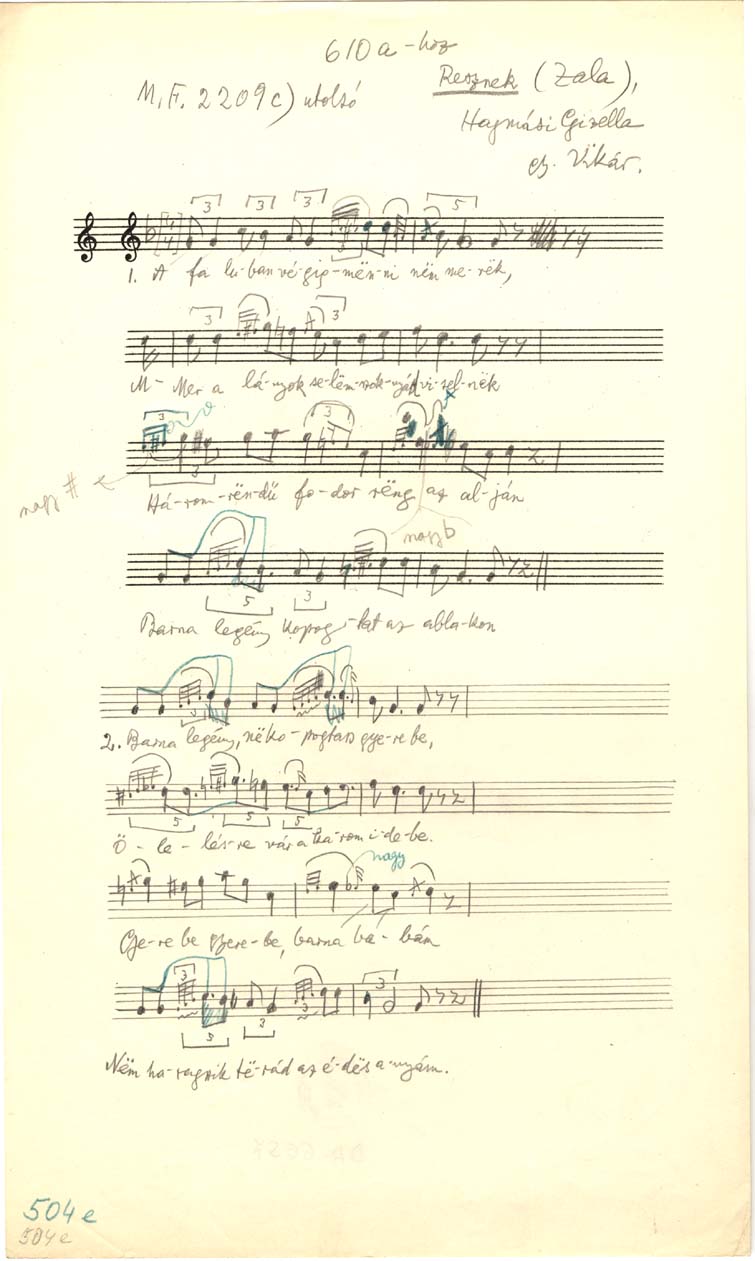 610a-hoz
M.F. 2209c) utolsó
Resznek (Zala),
Hagmási Gizella
Vikár.
3 3 3 5
3
1. A fa lu-ban vé-gig-mën-ni nëm me-rëk,
3 3
M- Mer a lá-nyok se-lëm-szok-nyát vi-sel-nëk
3 3
nagy #
3
Há-rom-rën-dű fo-dor rëng az al-ján
nagy b
5 3
Barna legény kopog-tat az abla-kon
3
2. Barna legény, në ko-pogtass gye-re be,
5 5 5
Ö-le-lés-re vár a károm i-de-be.
nagy
Gye-re be gyere-be, barna ba-bám
3 3
5 3
Nëm ha-ragszik të-rád az é-dës a-nyám.
504e
504e